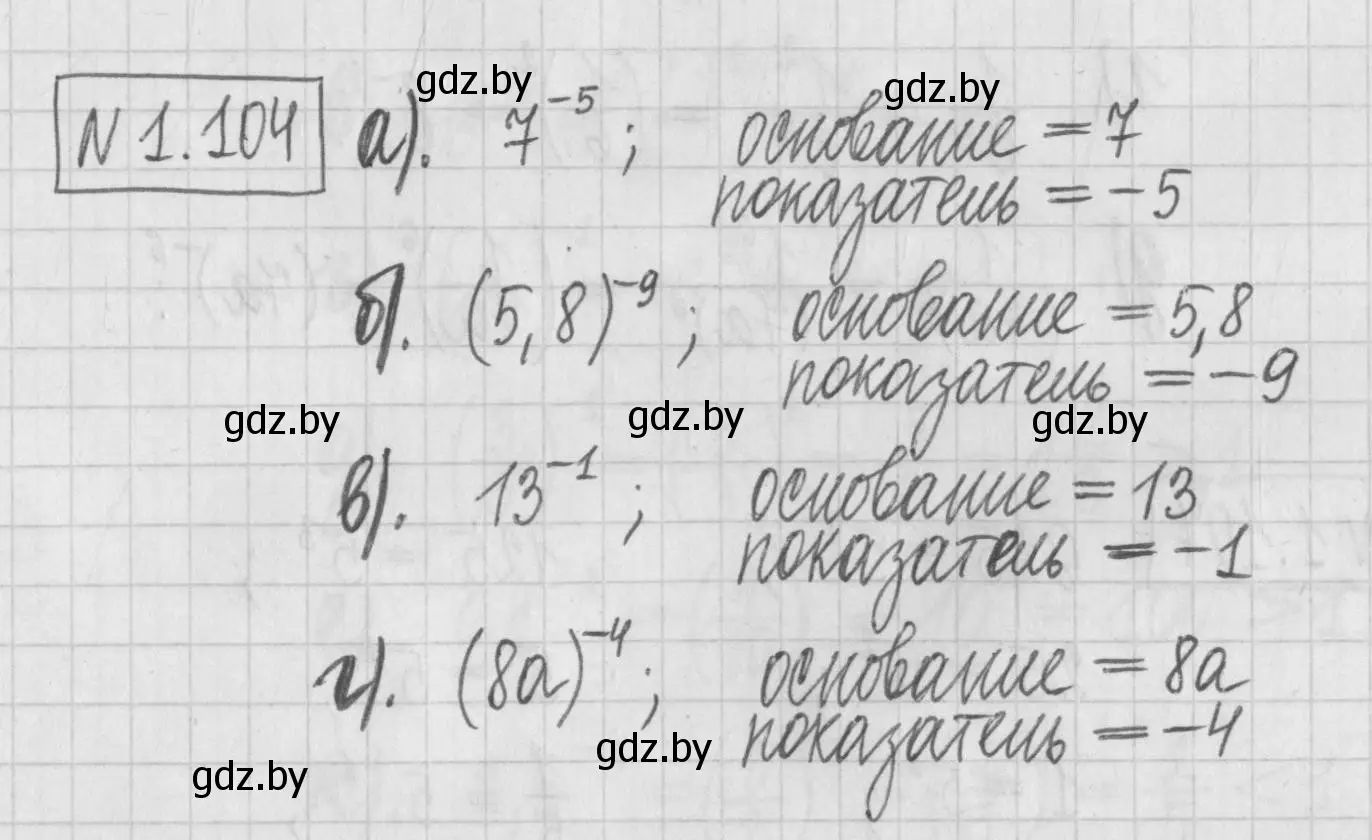 gdz.by gdz.by
N 1.104 а). 7⁻⁵ ; основание = 7
показатель = -5
б). (5,8)⁻⁹ ; основание = 5,8
показатель = -9
gdz.by gdz.by gdz.by
в). 13⁻¹ ; основание = 13
показатель = -1
г). (8a)⁻⁴ ; основание = 8a
показатель = -4
gdz.by gdz.by